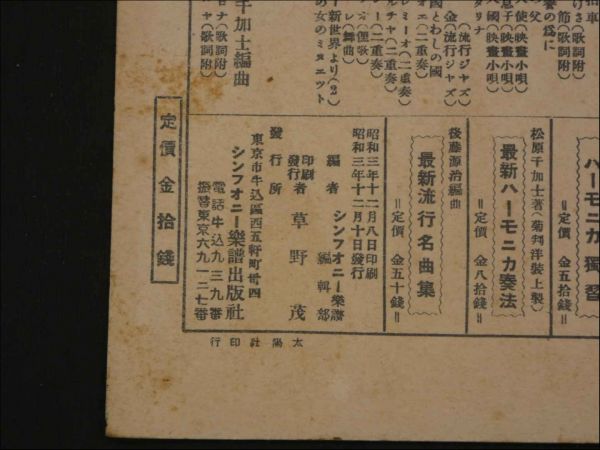 拍車
けさ(歌詞附)
節(歌詞附)
譽の爲に
父
天使(映畫小唄)
息子(映畫小唄)
大國(映畫小唄)
タリナ
(流行ジャズ)
金(流行ジャズ)
國とわしの國
オェ(二重奏)
レミーオ(二重奏)
ルチャ(二重奏)
ー(二重奏)
フオ(俚歌)
レ(舞曲)
ー新世界より(2)
の女のミヌエット
千加士編曲
ナ(歌詞附)
ャ(歌詞附)
ハーモニカ獨習
=定價 金五拾錢=
松原千加士著(菊判洋裝上製)
最新ハーモニカ奏法
=定價 金八拾錢=
後藤源治編曲
最新流行名曲集
=定價 金五十錢=
昭和三年十二月八日印刷
昭和三年十二月十日發行
編者 シンフオニー樂譜編輯部
印刷
發行者 草野茂
發行所
東京市牛込區西五軒町卅四
シンフオニー樂譜出版社
電話牛込九三九番
振替東京六九一二七番
定價金拾錢
太陽社印行